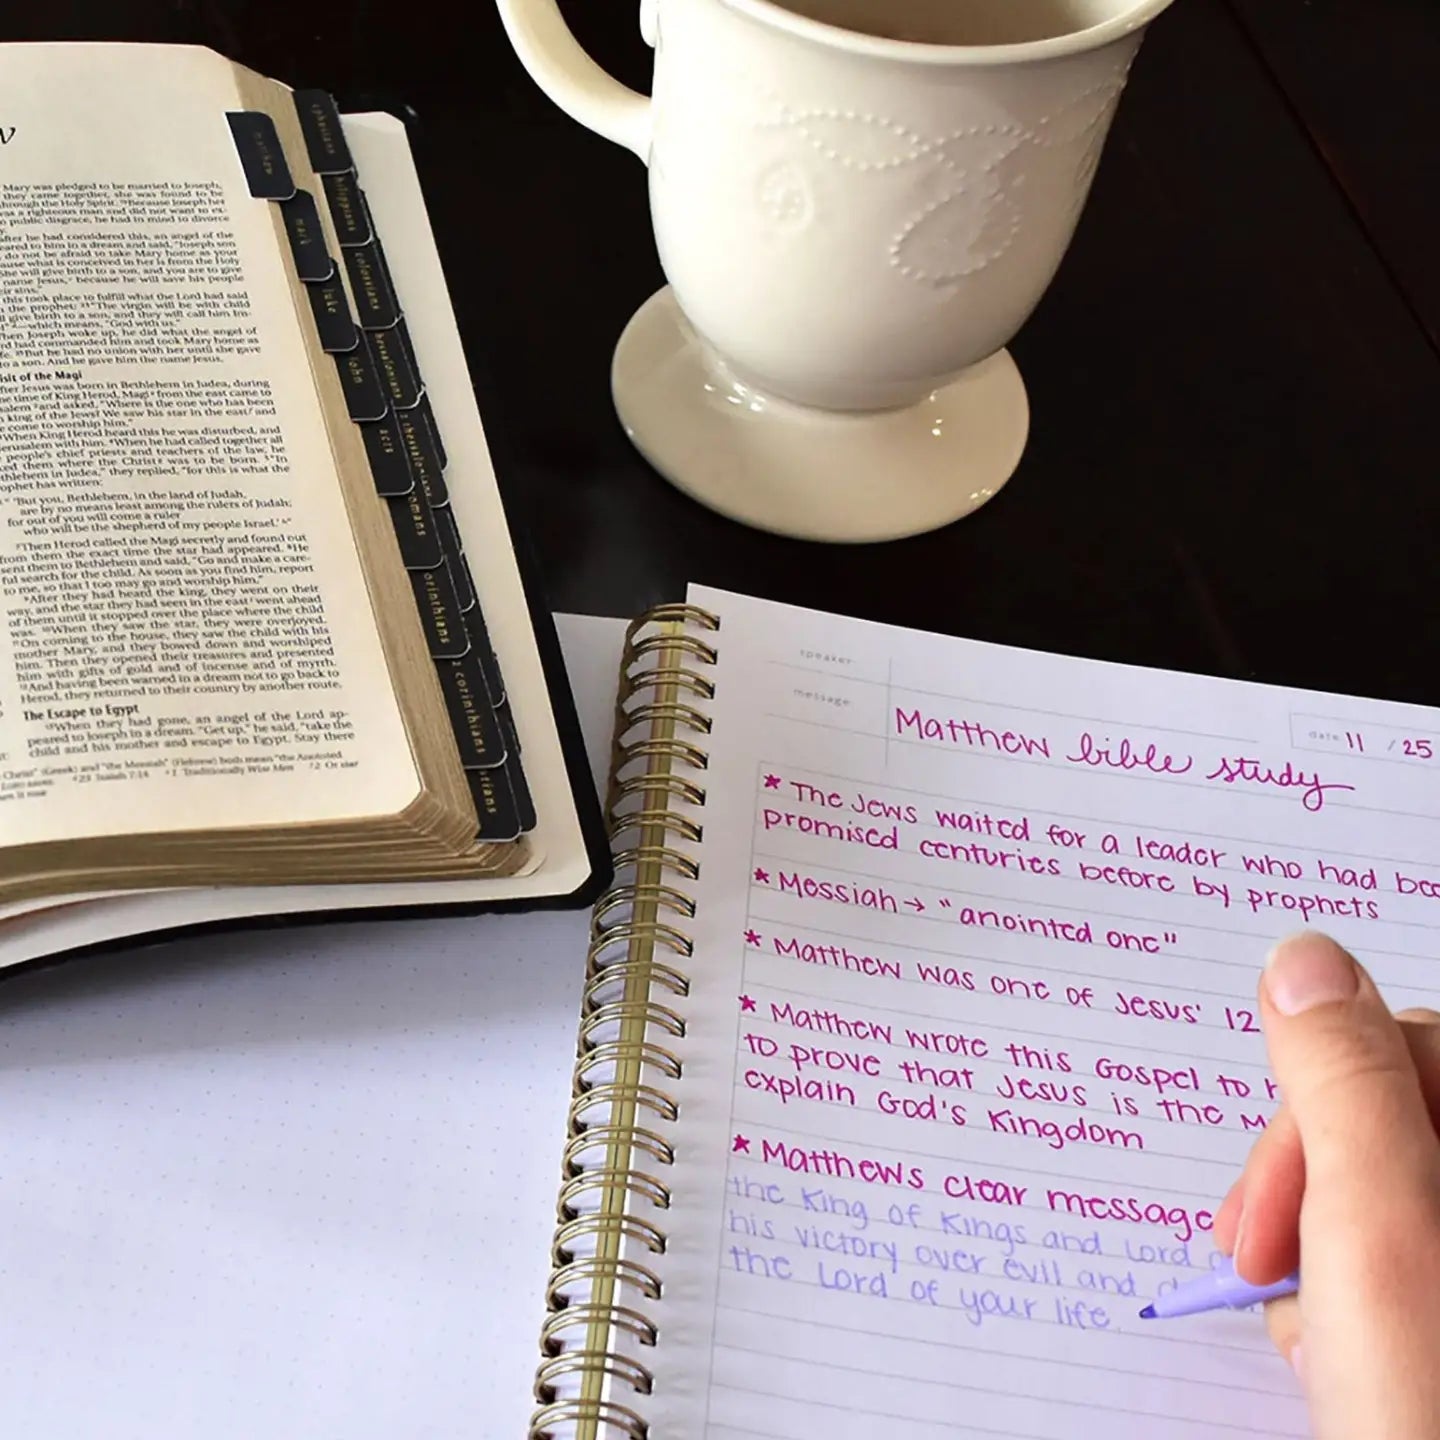 Mary was pledged to be married to Joseph,
they came together, she was found to be
through the Holy Spirit. 19Because Joseph her
was a righteous man and did not want to ex-
public disgrace, he had in mind to divorce
after he had considered this, an angel of the
appeared to him in a dream and said, "Joseph son
do not be afraid to take Mary home as your
because what is conceived in her is from the Holy
She will give birth to a son, and you are to give
name Jesus, because he will save his people
their sins."
this took place to fulfill what the Lord had said
the prophet: 23"The virgin will be with child
give birth to a son, and they will call him Im-
—which means, "God with us."
When Joseph woke up, he did what the angel of
had commanded him and took Mary home as
25But he had no union with her until she gave
to a son. And he gave him the name Jesus.
isit of the Magi
After Jesus was born in Bethlehem in Judea, during
time of King Herod, Magi from the east came to
salem 2and asked, "Where is the one who has been
king of the Jews? We saw his star in the east and
come to worship him."
When King Herod heard this he was disturbed, and
Jerusalem with him. 4When he had called together all
people's chief priests and teachers of the law, he
them where the Christ was to be born. 5"In
Bethlehem in Judea," they replied, "for this is what the
prophet has written:
"But you, Bethlehem, in the land of Judah,
are by no means least among the rulers of Judah;
for out of you will come a ruler
who will be the shepherd of my people Israel.'"
7Then Herod called the Magi secretly and found out
from them the exact time the star had appeared. 8He
sent them to Bethlehem and said, "Go and make a care-
ful search for the child. As soon as you find him, report
to me, so that I too may go and worship him."
9After they had heard the king, they went on their
way, and the star they had seen in the east went ahead
of them until it stopped over the place where the child
was. 10When they saw the star, they were overjoyed.
11On coming to the house, they saw the child with his
mother Mary, and they bowed down and worshiped
him. Then they opened their treasures and presented
him with gifts of gold and of incense and of myrrh.
12And having been warned in a dream not to go back to
Herod, they returned to their country by another route.
The Escape to Egypt
13When they had gone, an angel of the Lord ap-
peared to Joseph in a dream. "Get up," he said, "take the
child and his mother and escape to Egypt. Stay there
matthew
mark
luke
john
acts
romans
corinthians
2 corinthians
ephesians
philippians
colossians
thessalonians
2 thessalonians
speaker
message
Matthew bible study
date 11 / 25
* The Jews waited for a leader who had bee
promised centuries before by prophets
* Messiah → "anointed one"
* Matthew was one of Jesus' 12
* Matthew wrote this Gospel to
to prove that Jesus is the M
explain God's Kingdom
* Matthews clear message
the King of Kings and Lord
his victory over evil and
the Lord of your life.